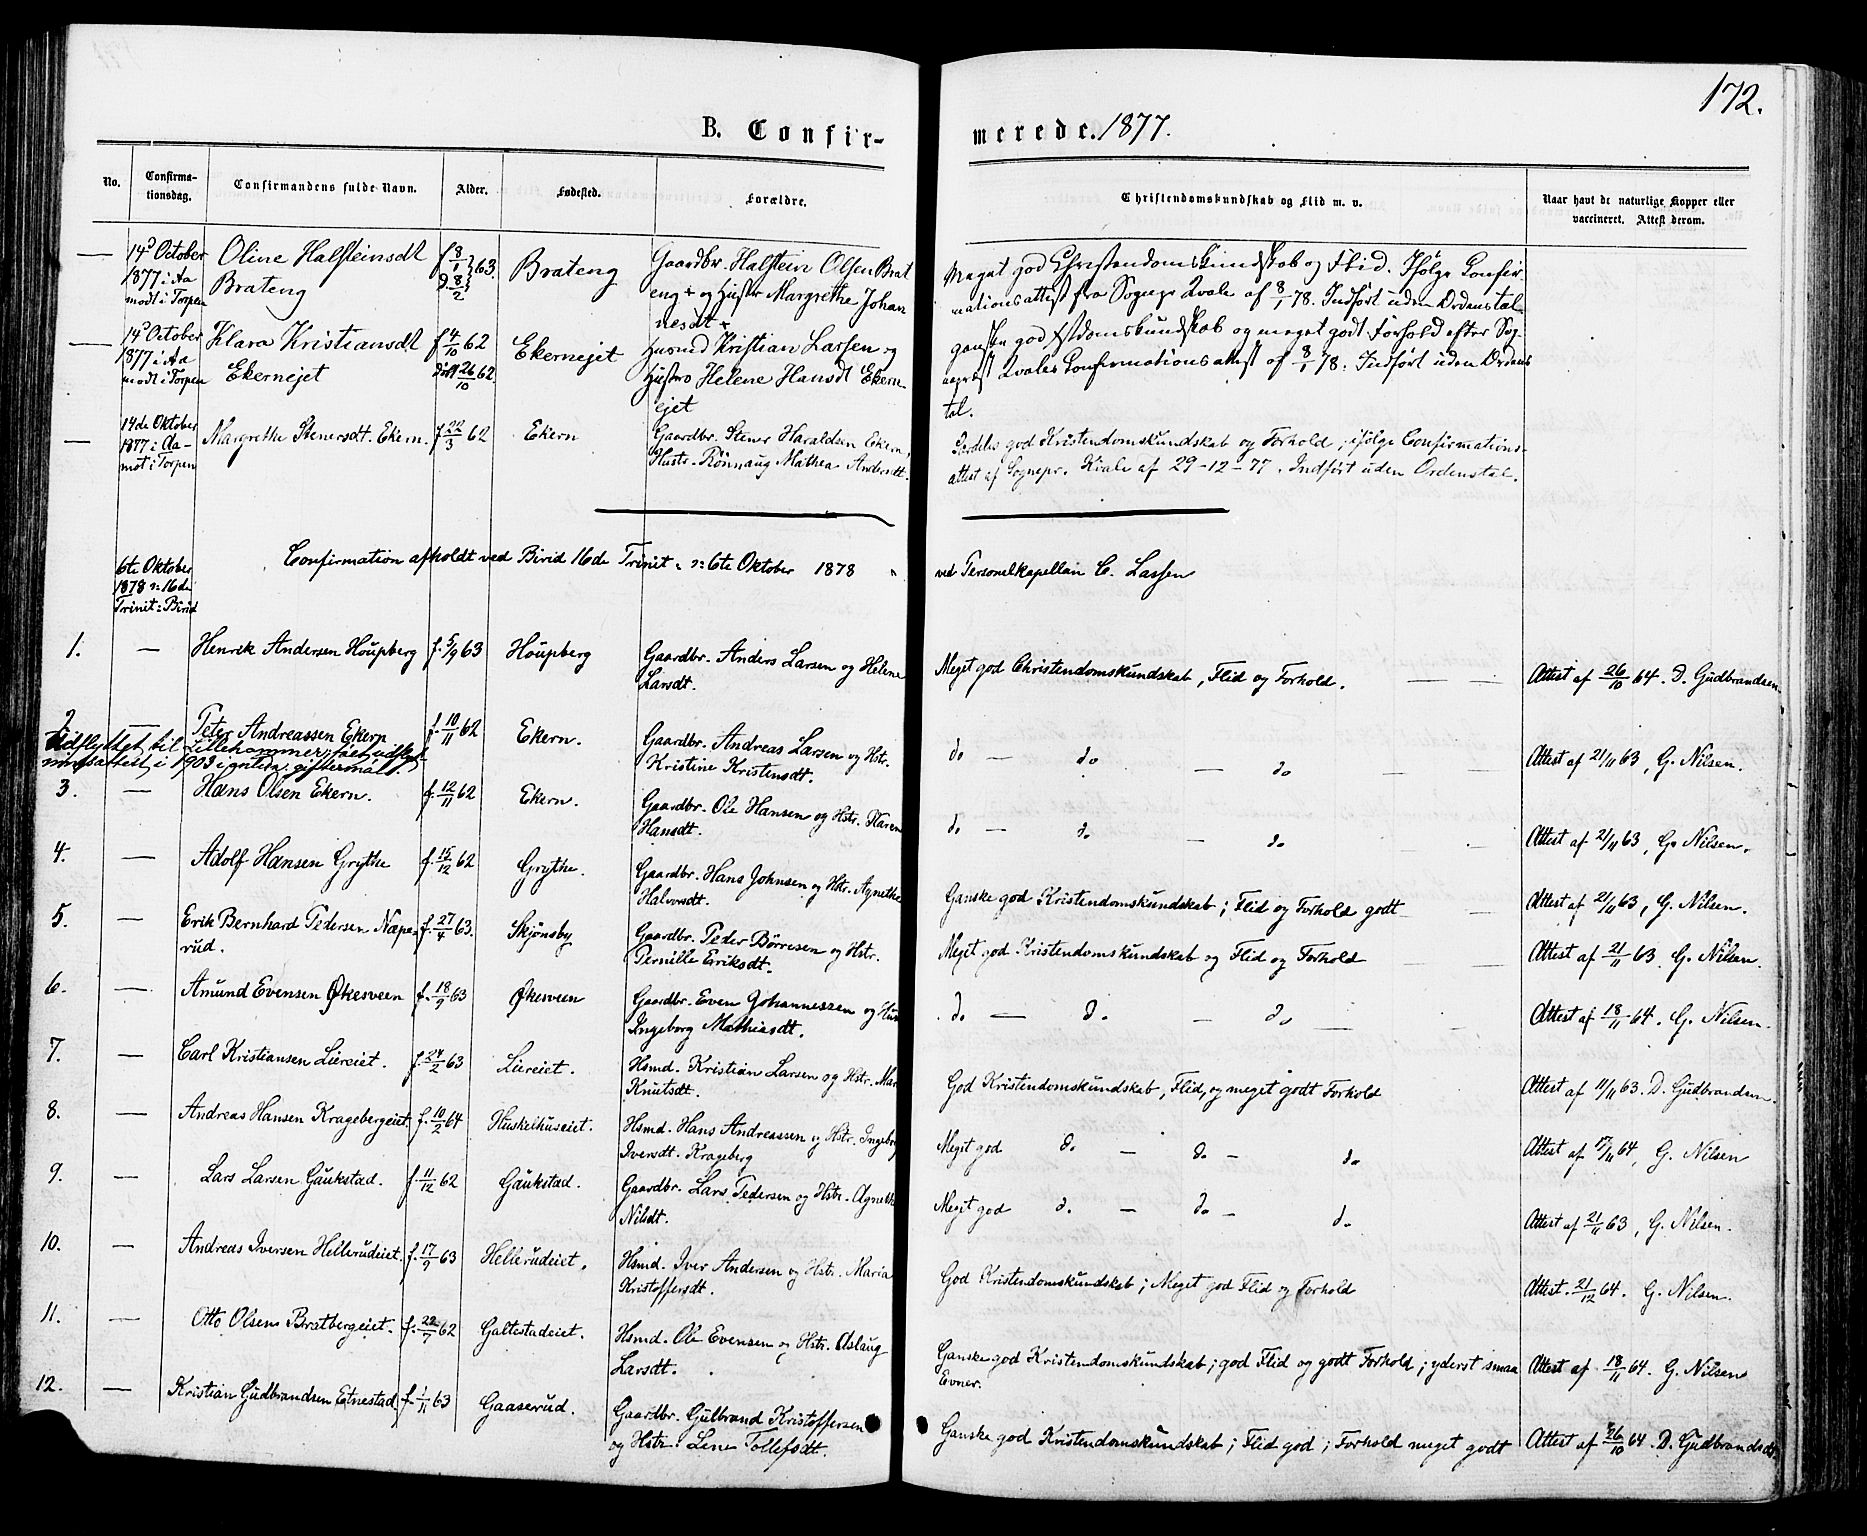 172.
B. Confir-
merede. 1877.
No.
Confirma-
tionsdag.
Confirmandens fulde Navn.
Alder.
Fødested.
Forældre.
Christendomskundskab og Flid m. v.
Naar havt de naturlige Kopper eller
vaccineret. Attest derom.
— 14d October Oline Halsteinsdt f 8/1 63. Brateng Gaardbr. Halstein Olsen Brat
1877 i Aa Brateng D. 8/2 eng + og Hustr Margrethe Johan
modt i Torpen nesdt +
Meget god Christendomskundskab og Flid. Ifølge Confir
mationsattest fra Sognepr Qvale af 8/1 78. Indført uden Ordenstal
— 14d October Klara Kristiansdt f 4/10 62 Ekernejet Husmd Kristian Larsen og
1877 i Aa Ekernejet 26/10 62 Hustro Helene Hansdt Ekern
modt i Torpen ejet
ganske god Xstdomskundskab og meget godt Forhold efter Sog
nepræst Qvales Confirmationsattest af 8/1 78. Indført uden Ordens
tal.
— 14de Oktober Margrethe Stenersdt. Ekern. f 22/3 62 Ekern Gaardbr. Stener Haraldsen Ekern,
1877 i Aa- Hustr. Rönnaug Mathea Andersdt.
mot i Torpen
Særdeles god Kristendomskundskab og Forhold, ifølge Confirmations-
attest af Sognepr. Kvale af 29-12-77. Indført uden Ordenstal.
6te Oktober Confirmation afholdt ved Birid 16de Trinit. ɔ: 6te Oktober 1878 ved Personelkapellan C. Lassen
1878 ɔ: 16de
Trinit: Birid
1. — Henrik Andersen Houpberg f. 5/9 63 Houpberg Gaardbr. Anders Larsen og Helene
Larsdt.
Meget god Christendomskundskab, Flid og Forhold. — — Attest af 26/10 64. D. Gudbrandsen.
2. — Peter Andreassen Ekern f. 10/11 62 Ekern. Gaardbr. Andreas Larsen og Hstr.
Kristine Kristensdt.
Udflyttet til Lillehammer; fået udflyt-
ningsattest i 1903 i anledn. giftermål.
do — do — do — — Attest af 21/11 63, G. Nilsen.
3. — Hans Olsen Ekern. f. 12/11 62 Ekern. Gaardbr. Ole Hansen og Hstr. Karen
Hansdt.
do — do — do — — Attest af 21/11 63, G. Nilsen.
4. — Adolf Hansen Grythe f. 15/12 62 Grythe. Gaardbr. Hans Johnsen og Hstr. Agnethe
Halvorsdt.
Ganske god Kristendomskundskab; Flid og Forhold godt — Attest af 21/11 63, G. Nilsen.
5. — Erik Bernhard Pedersen Næpe- f. 27/4 63. Skjönsby Gaardbr. Peder Börresen og Hstr.
rud. Pernille Eriksdt.
Meget god Kristendomskundskab og Flid og Forhold — — Attest af 21/11 63. G. Nilsen.
6. — Amund Evensen Økesveen f. 18/9 63 Økesveen Gaardbr. Even Johannessen og Hus
Ingeborg Mathiasdt.
do — do — do — — Attest af 18/11 64. G. Nilsen.
7. — Carl Kristiansen Liereiet. f. 24/2 63 Liereiet. Hsmd. Kristian Larsen og Hstr. Mar
Knutsdt.
God Kristendomskundskab, Flid, og meget godt Forhold Attest af 11/11 63. D. Gudbrandsen.
8. — Andreas Hansen Kragebergeiet. f. 10/2 64 Huskelhuseiet. Hsmd. Hans Andreassen og Hstr. Ingebor
Iversdt. Krageberg
Meget god do — do — do Attest af 17/11 64, G. Nilsen
9. — Lars Larsen Gaukstad. f. 11/12 62 Gaukstad. Gaardbr. Lars Pedersen og Hstr. Agneth
Nilsdt.
Meget god do — do — do Attest af 21/11 63, G. Nilsen.
10. — Andreas Iversen Hellerudeiet. f. 17/9 63 Hellerudeiet. Hsmd. Iver Andersen og Hstr. Maria
Kristoffersdt.
God Kristendomskundskab; Meget god Flid og Forhold Attest. 21/12 64. G. Nilsen.
11. — Otto Olsen Bratbergeiet. f. 22/9 62 Galtestadeiet. Hsmd. Ole Evensen og Hstr. Aslaug
Larsdt.
Ganske god Kristendomskundskab; god Flid og godt Forhold; yderst smaa Attest af 18/11 64. G. Nilsen
Evner.
12. — Kristian Gudbrandsen Etnestad. f. 1/11 63 Gaaserud. Gaardbr. Gulbrand Kristoffersen
og Hstr. Lene Tollefsdt.
Ganske god Kristendomskundskab; Flid god; Forhold meget godt Attest af 26/10 64. D. Gudbrandsdt